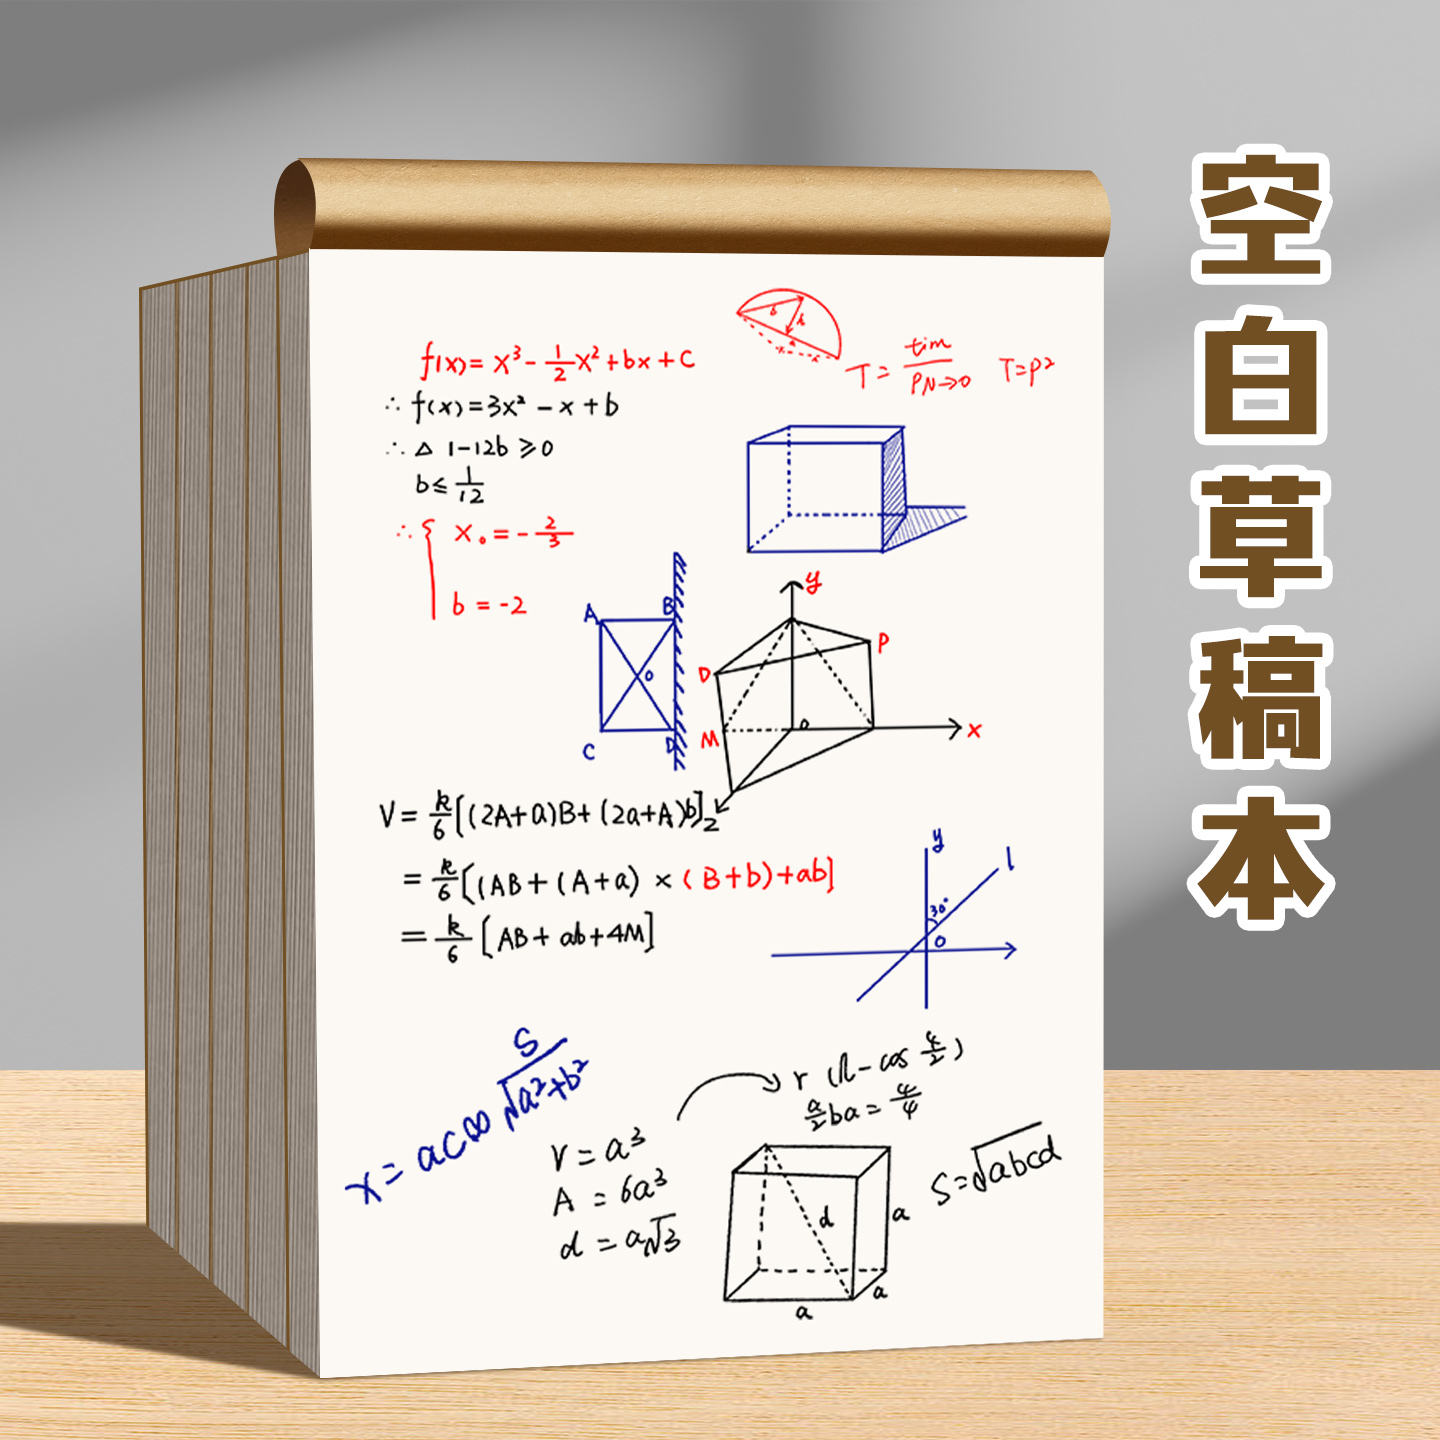 空白草稿本
f(x)= x³- 1/2 x²+bx+C
∴ f(x)=3x² - x + b
∴ △ 1-12b ≥0
b≤ 1/12
∴ { x₀ = - 2/3
b = -2
T= tim/PN→0 T=P²
A B
O
C D
y
D P
M O x
V= k/6[(2A+a)B+(2a+A)b]
z
= k/6[(AB+(A+a)×(B+b)+ab]
= k/6[AB+ab+4M]
y
l
30°
O
x= ac∞ S/√a²+b²
r (l-cos 4/2)
a/2 ba= 4/4
V=a³
A =6a³
d =a√3
d
a
a
a
S=√abcd